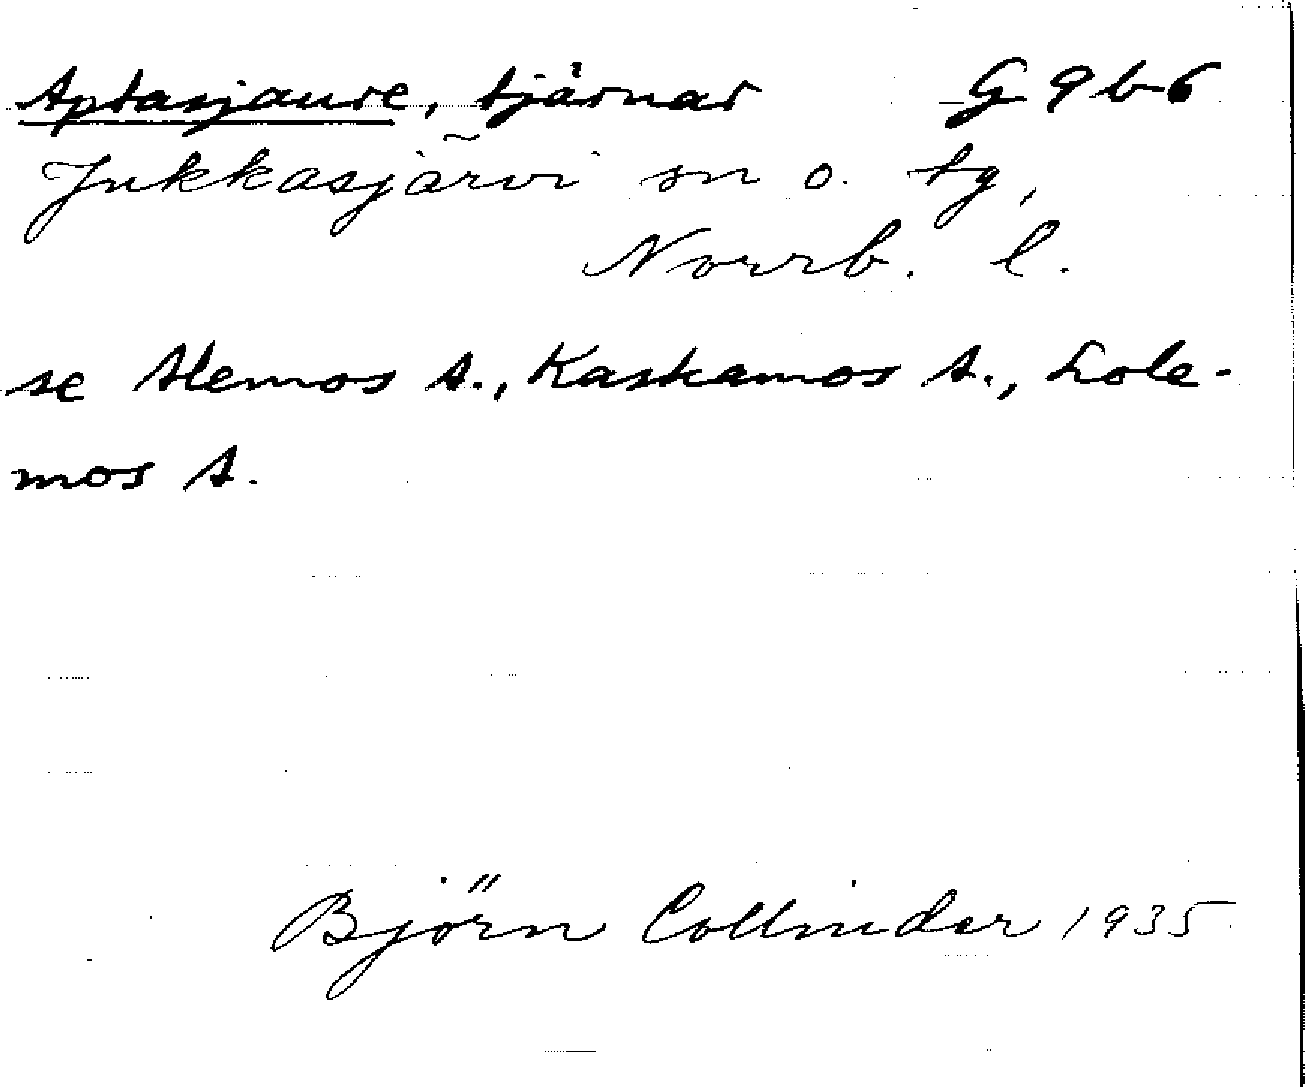 Aptasjaure, tjärnar G 9 b 6
Jukkasjärvi sn o. tg,
Norrb. l.
se Alemos A., Kaskamos A., Lole-
mos A.
Björn Collinder 1935